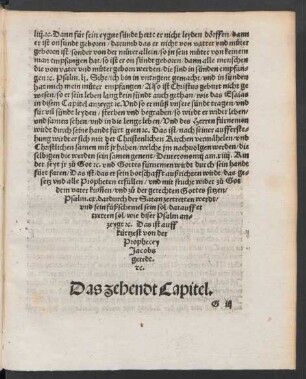 liij.ꝛc. Dann für sein eygne sünde hette er nicht leyden dörffen / dann
er ist on sünde geboren / darumb das er nicht von vatter vnd müter
geboren ist sonder von der müter allein / so in sein müter von keinem
man empfangen hat / so ist er on sünde geboren / dann alle menschen
die von vater vnd müter geboren werden / die sind in sünden empfan-
gen ꝛc. Psalm. lj. Sihe ich bin in vntugent gemacht / vnd in sünden
hat mich mein müter empfangen. Also ist Christus geburt nicht ge
wesen / so er sein leben lang kein sünde hat gethan / wie das Esaias
in disem Capitel anzeygt ꝛc. Vnd so er müß vnsere sünde tragen / vnd
für vil sünde leyden / sterben vnd begraben / so wirdt er wider leben /
vnd samen sehen / vnd in die lenge leben / Vnd des Herren fürnemen
wirdt durch seine handt fürt geen ꝛc. Das ist / nach seiner aufferste-
hung wirdt er sich mit der Christlichen Kirchen vermähelen / vnd
Christlichen samen mit jr haben / welche jm nachvolgen werden / die
selbigen die werden sein samen genent / Deuteronomij am. xiiij. Ihr
der seyt jr zu Gott ꝛc. vnd Gottes fürnemen wirdt durch sein handt
fürt faren. Das ist / das er sein botschafft außrichten wirdt / das ge-
setz vnd alle Propheten erfüllen / vnd mit frucht wider zu Got
dem vatter kummen / vnd zu der gerechten Gottes sitzen /
Psalm. cx. dardurch der Satan zertretten werdt /
vnd sein füßschemel sein sol darauff er
tretten sol / wie diser Psalm an-
zeygt ꝛc. Das ist auff
kürtzest von der
Prophecey
Jacobs
geredt.
ꝛc.
Das zehendt Capitel.
G iij